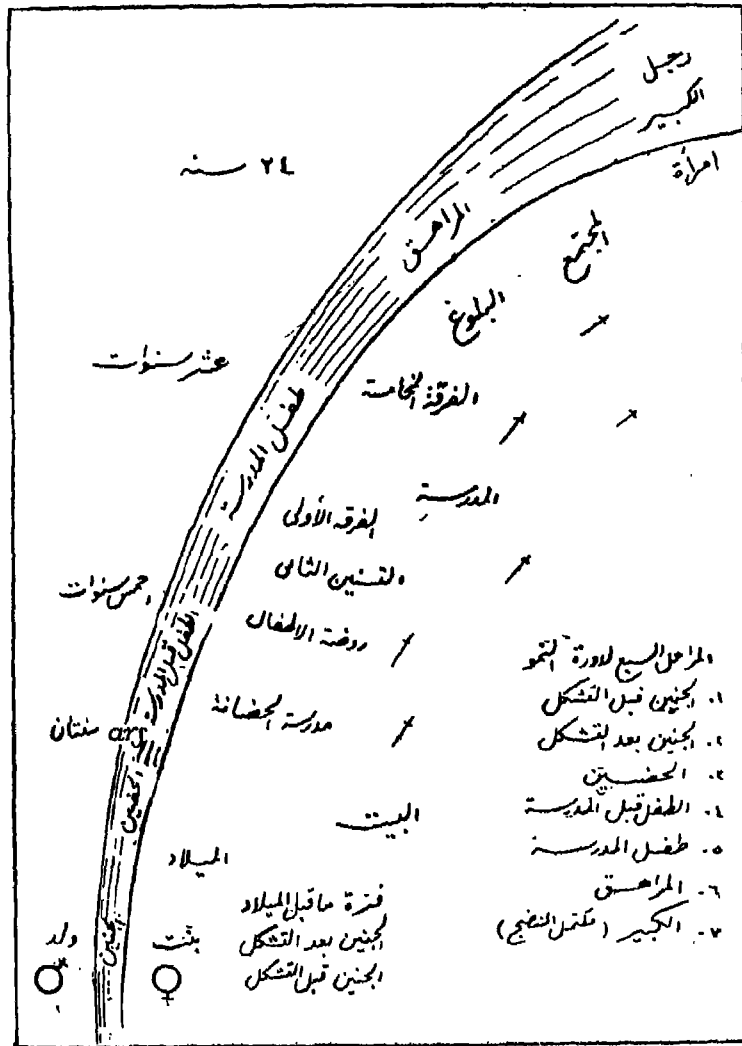 رجل
الكبير
امرأة
٢٤ سنه
المراهق
المجتمع
البلوغ
عشر سنوات
الفرقة الخامسة
طفل المدرسة
المدرسة
الفرقه الأولى
التسنين الثانى
خمس سنوات
الطفل قبل المدرسة
روضة الاطفال
مدرسة الحضانة
سنتان
الحضين
البيت
الميلاد
فترة ما قبل الميلاد
الجنين بعد التشكل
الجنين قبل التشكل
الجنين
ولد
بنت
♂
♀
المراحل السبع لدورة النمو
١. الجنين قبل التشكل
٢. الجنين بعد التشكل
٣. الحضين
٤. الطفل قبل المدرسة
٥. طفل المدرسة
٦. المراهق
٧. الكبير (مكتمل النضج)